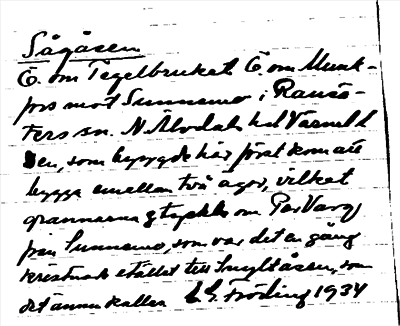 Sågåsen
Ö. om Tegelbruket Ö. om Munk-
fors mot Sunnemo, i Ransä-
ters sn. N. Modal
Den, som byggde här först kom att
bygga emellan två ägor, vilket
grannarna tyckte om Per
från Sunnemo, som var det en gång
stället till Smyltåsen, som
det ännu kallas G. Fröding 1934